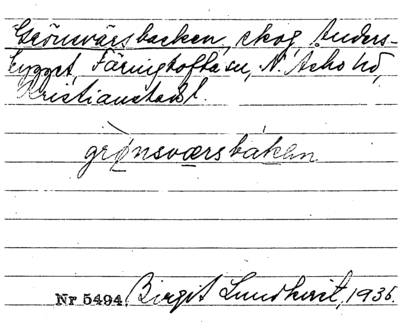 Grönsvärsbacken, skog, Anders-
bygget, Färingtofta sn, N. Åsbo hd,
Kristianstads l.
grønsværsbakən
Nr 5494 Birgit Lundkvist, 1936.